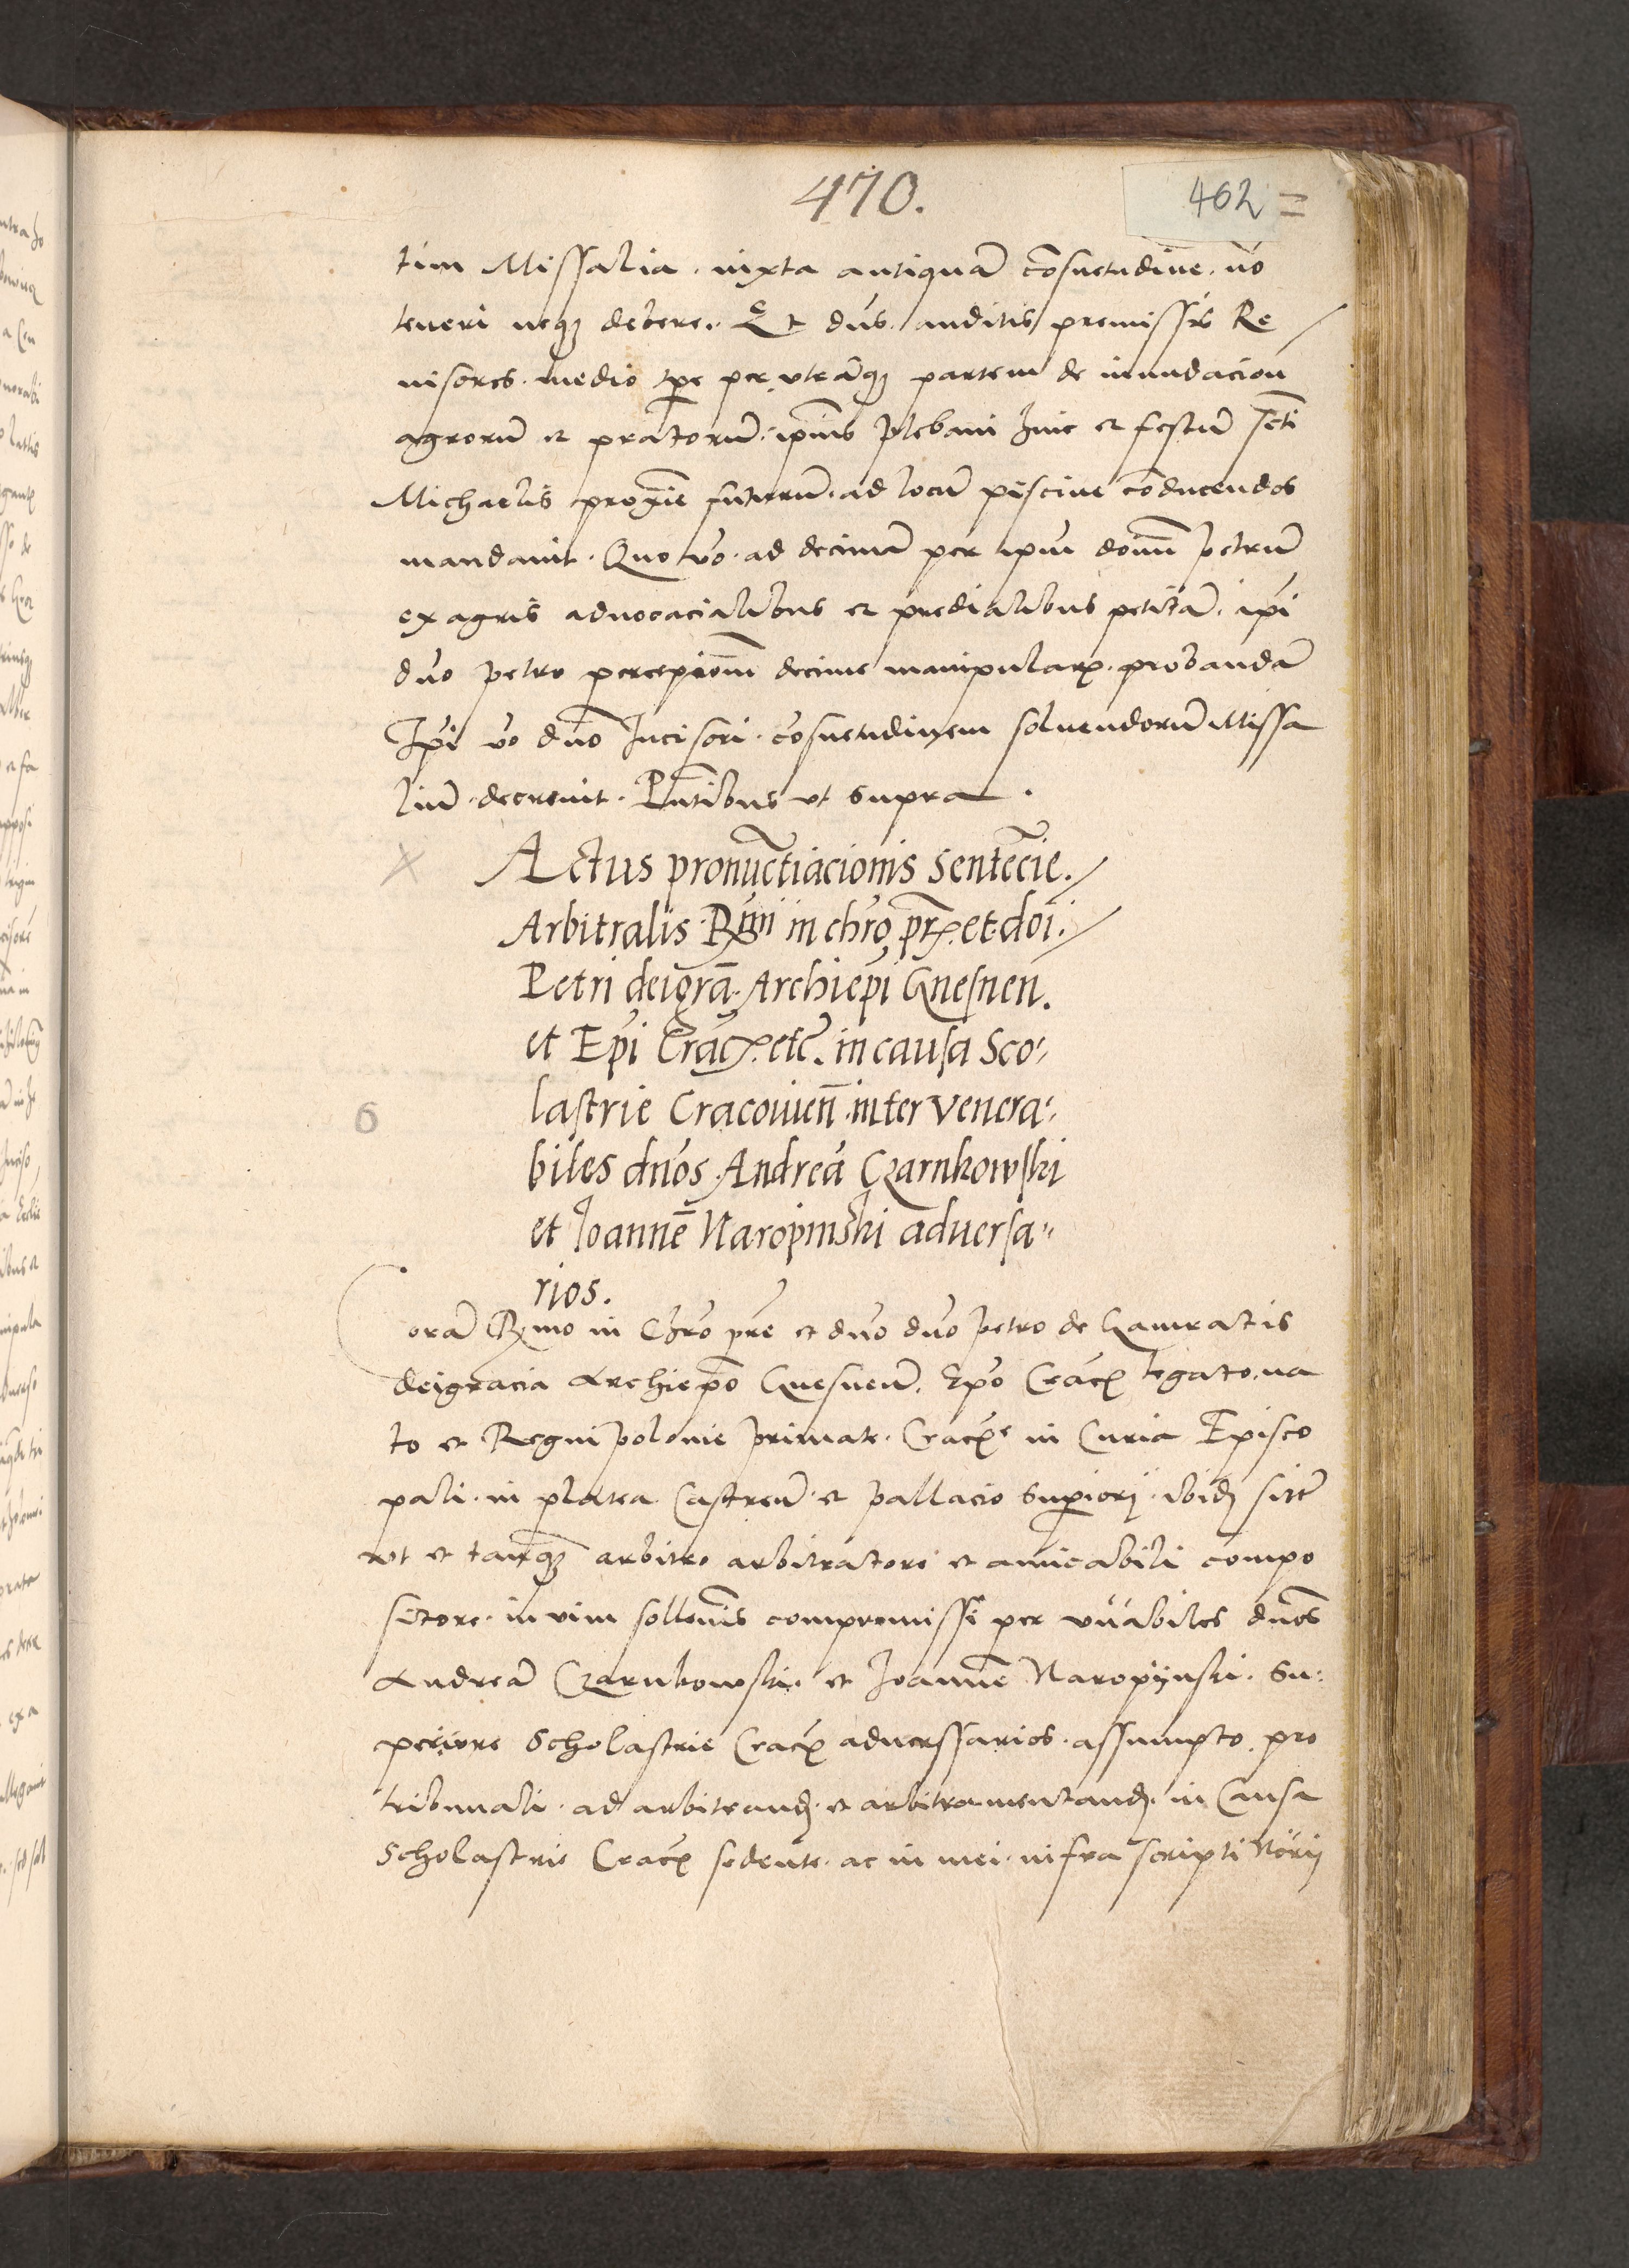 470.
462
tim Missalia. iuxta antiquā cōsuetudine. nō
teneri neqꝫ debere. Et dn̄s. auditis premissis Re
uisores. medio tp̄e per vtrāqꝫ partem de inundacion
agrorū et pratorū. ipīus plebani hinc et festū scti
Michaelis proxīe futurū. ad locū piscine cōducendos
mandauit. Quo v̄o. ad decimā per ip̄m domī petrū
ex agris aduocacialibus et predialibus petitā. ip̄i
dn̄o petro percepīonem decime manipularꝫ. probandā
Ip̄i v̄o dn̄o Incisori. cōsuetudinem soluendorū Missa
liū. decreuit. Pn̄tibus vt supra.
Actus pronūctiacionis sentēcie.
Arbitralis Rx̄mi in chr̄o pr̄ꝫ. et doī.
Petri dei gr̄a. Archiep̄i Gnesnen.
et Ep̄i Crac̄ꝫ. etc̄. in causa Sco-
lastrie Cracouien̄. inter venera-
biles dn̄os Andreā Czarnkowski
et Joannē Naropinski aduersa-
rios.
Corā Rx̄mo in Chr̄o pr̄e et dn̄o dn̄o petro de Gamratis
dei gracia Archiep̄o Gnesnen̄. Ep̄o Crac̄ꝫ legato. na
to et Regni polonie primate. Crac̄ꝫ in Curia Episco
pali. in platea Castren̄. et pallacio superiorj. ibidꝫ sitē
vt et tanqꝫ arbitro arbitratore et amicabili compo
sitore. in vim sollenīs compromissi per vn̄abiles dn̄os
Andreā Czarnkowski. et Joannē Naropijnski. su-
periore Scholastrie Crac̄ꝫ aduerssarios. assumpto. pro
tribunali. ad arbitrandꝫ. et arbitramentandꝫ. in Causa
Scholastrie Crac̄ꝫ sedente. ac in mei. infra scripti Nōrij
6